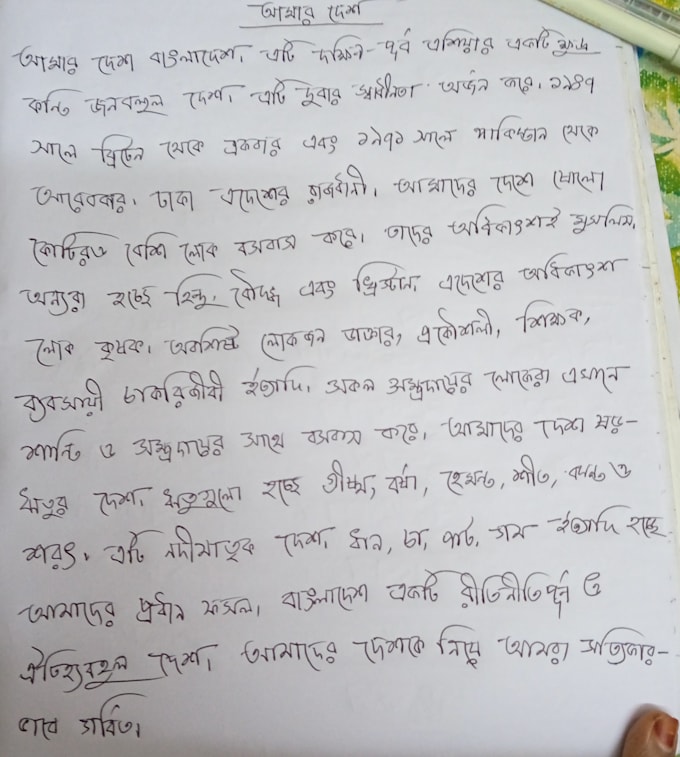 আমার দেশ
আমার দেশ বাংলাদেশ। এটি দক্ষিন-পূর্ব এশিয়ার একটি ক্ষুদ্র
কিন্তু জনবহুল দেশ। এটি দুবার স্বাধীনতা অর্জন করে। ১৯৪৭
সালে ব্রিটেন থেকে একবার এবং ১৯৭১ সালে পাকিস্তান থেকে
আরেকবার। ঢাকা এদেশের রাজধানী। আমাদের দেশে ষোলো
কোটিরও বেশি লোক বসবাস করে। তাদের অধিকাংশই মুসলিম,
অন্যরা হচ্ছে হিন্দু, বৌদ্ধ এবং খ্রিস্টান। এদেশের অধিকাংশ
লোক কৃষক। অবশিষ্ট লোকজন ডাক্তার, প্রকৌশলী, শিক্ষক,
ব্যবসায়ী চাকরিজীবী ইত্যাদি। সকল সম্প্রদায়ের লোকেরা এখানে
শান্তি ও সম্প্রদায়ের সাথে বসবাস করে। আমাদের দেশ ষড়-
ঋতুর দেশ। ঋতুগুলো হচ্ছে গ্রীষ্ম, বর্ষা, হেমন্ত, শীত, বসন্ত ও
শরৎ। এটি নদীমাতৃক দেশ। ধান, চা, পাট, গম ইত্যাদি হচ্ছে
আমাদের প্রধান ফসল। বাংলাদেশ একটি রীতিনীতিপূর্ন ও
ঐতিহ্যবহুল দেশ। আমাদের দেশকে নিয়ে আমরা সত্যিকার-
ভাবে গর্বিত।